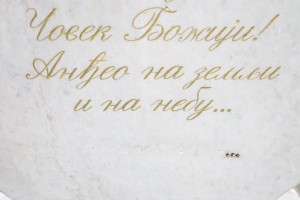 Човек Божији!
Анђео на земљи
и на небу...